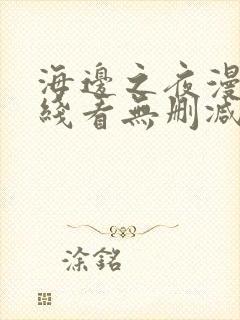 海邊之夜漫
綫看無刪减
涂銘